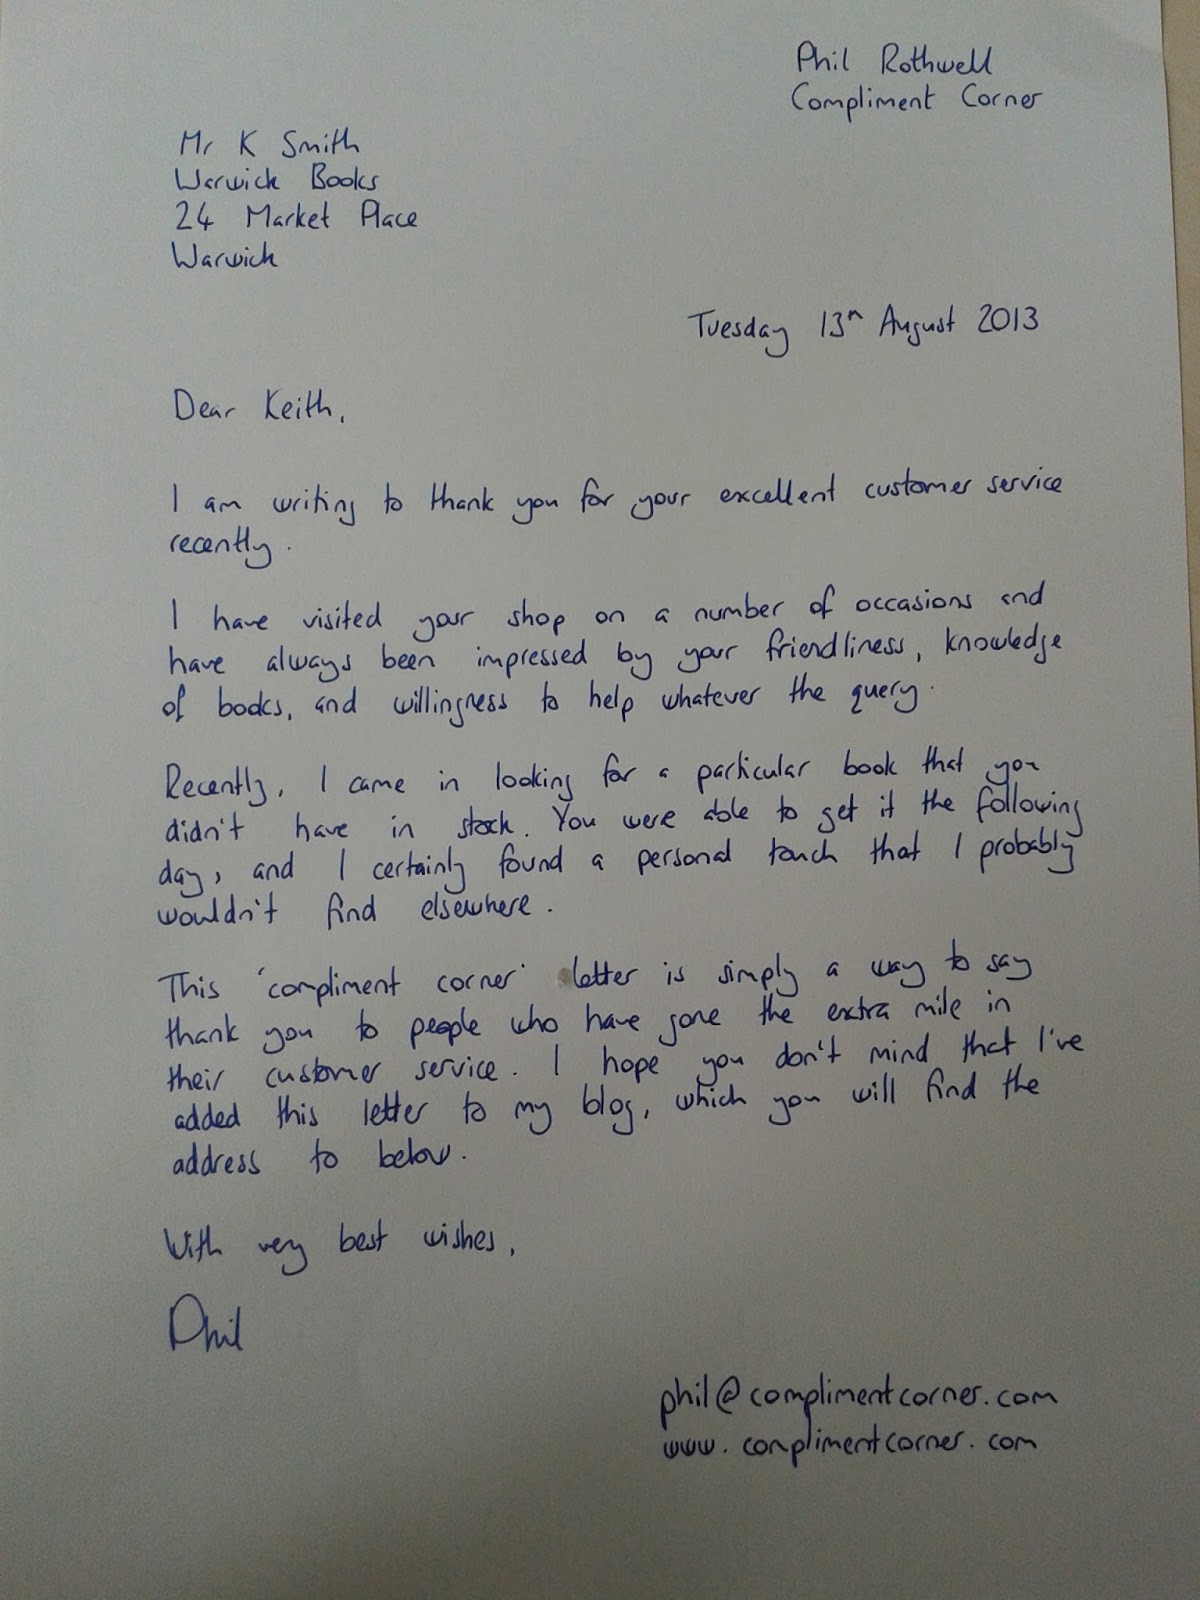 Phil Rothwell
Compliment Corner
Mr K Smith
Warwick Books
24 Market Place
Warwick
Tuesday 13th August 2013
Dear Keith,
I am writing to thank you for your excellent customer service
recently.
I have visited your shop on a number of occasions and
have always been impressed by your friendliness, knowledge
of books, and willingness to help whatever the query.
Recently, I came in looking for a particular book that you
didn't have in stock. You were able to get it the following
day, and I certainly found a personal touch that I probably
wouldn't find elsewhere.
This 'compliment corner' letter is simply a way to say
thank you to people who have gone the extra mile in
their customer service. I hope you don't mind that I've
added this letter to my blog, which you will find the
address to below.
With very best wishes,
Phil
phil@complimentcorner.com
www.complimentcorner.com